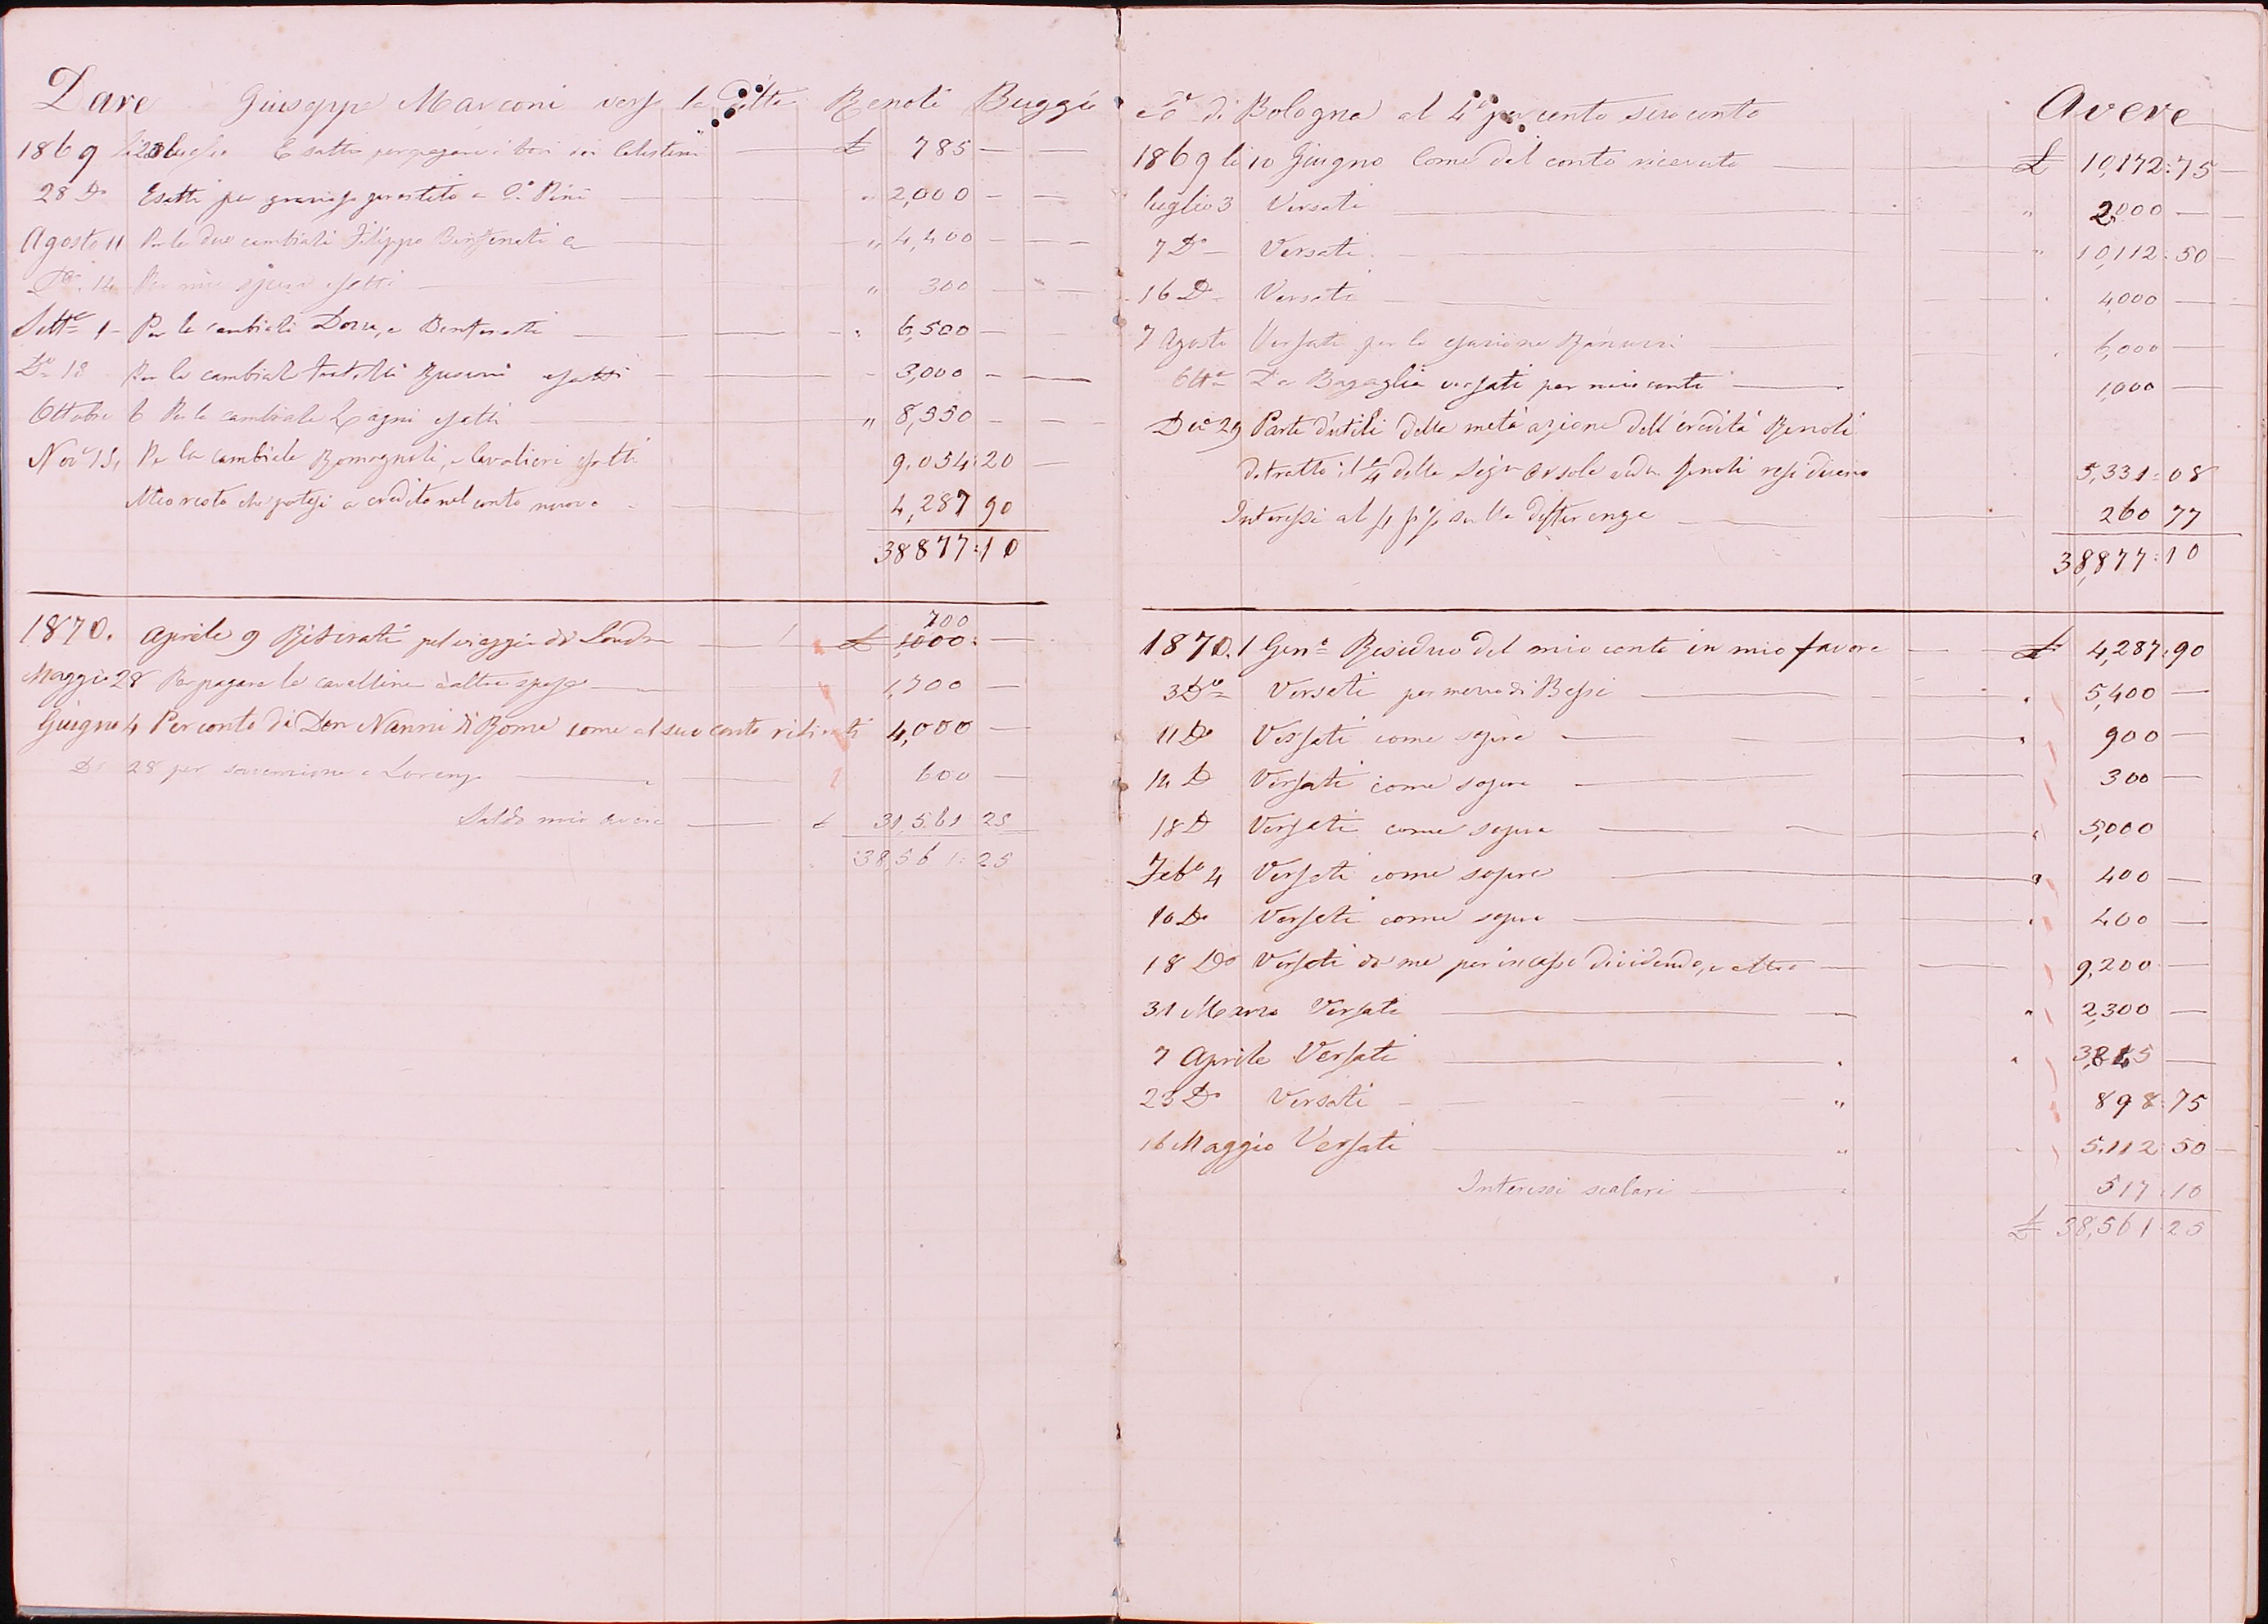 Dare Giuseppe Marconi verso la Ditta Renoli Buggio
1869 Luglio Esatti per pagare i bovi dei Celestini £ 785 — —
28 Do Esatti per prestito a Pini " 2,000 — —
Agosto 11 Per le due cambiali Filippo Benfenati " 4,400 — —
Do. 14 Per mie spese esatti " 300 — —
Sette 1 Per le cambiali e Benfenati " 6,500 — —
Do 18 Per la cambiale fratelli esatti " 3,000 — —
Ottobre 6 Per la cambiale Zagni esatti " 8,550 — —
Nov. 15, Per la cambiale Romagnoli, e Cavalieri esatti 9,054:20 —
Mio resto che portasi a credito nel conto nuovo 4,287 90
38877:10
1870. Aprile 9 Ritirati pel viaggio di Londra £ 1,000: —
700
Maggio 28 Per pagare le cavalline e altre spese 1,700 —
Giugno 4 Per conto di Don Nanni di Roma come al suo conto ritirati 4,000 —
Do 28 per sovvenzione a Lorenzo " 600 —
Saldo mio avere £ 31,561 25
38,561:25
Co di Bologna al 4 per cento suo conto Avere
1869 li 10 Giugno Come dal conto ricevuto £ 10,172:75
luglio 3 Versati " 2,000 —
7 Do Versati " 10,112:50
16 Do Versati 4,000 —
7 Agosto Versati per la 6,000 —
Otte Da Bagaglia versati per mio conto 1,000 —
Dec. 29 Parte d'utili della metà azione dell'eredità Renoli
detratto il 1/4 della Sigra Orsola Renoli 5,331:08
Interessi al 4 p % sulla differenza 260 77
38,877:10
1870. 1 Geno Residuo del mio conto in mio favore £ 4,287:90
3 Do Versati per mezzo di Bessi " 5,400 —
11 Do Versati come sopra " 900 —
14 D Versati come sopra 300 —
18 D Versati come sopra " 5,000
Febo 4 Versati come sopra " 400 —
10 Do Versati come sopra " 400 —
18 Do Versati da me per incasso dividendo, e altro 9,200 —
31 Marzo Versati " 2,300 —
7 Aprile Versati "
23 Do Versati " 898:75
16 Maggio Versati " 5,112:50
Interessi scalari " 517:10
£ 38,561:25